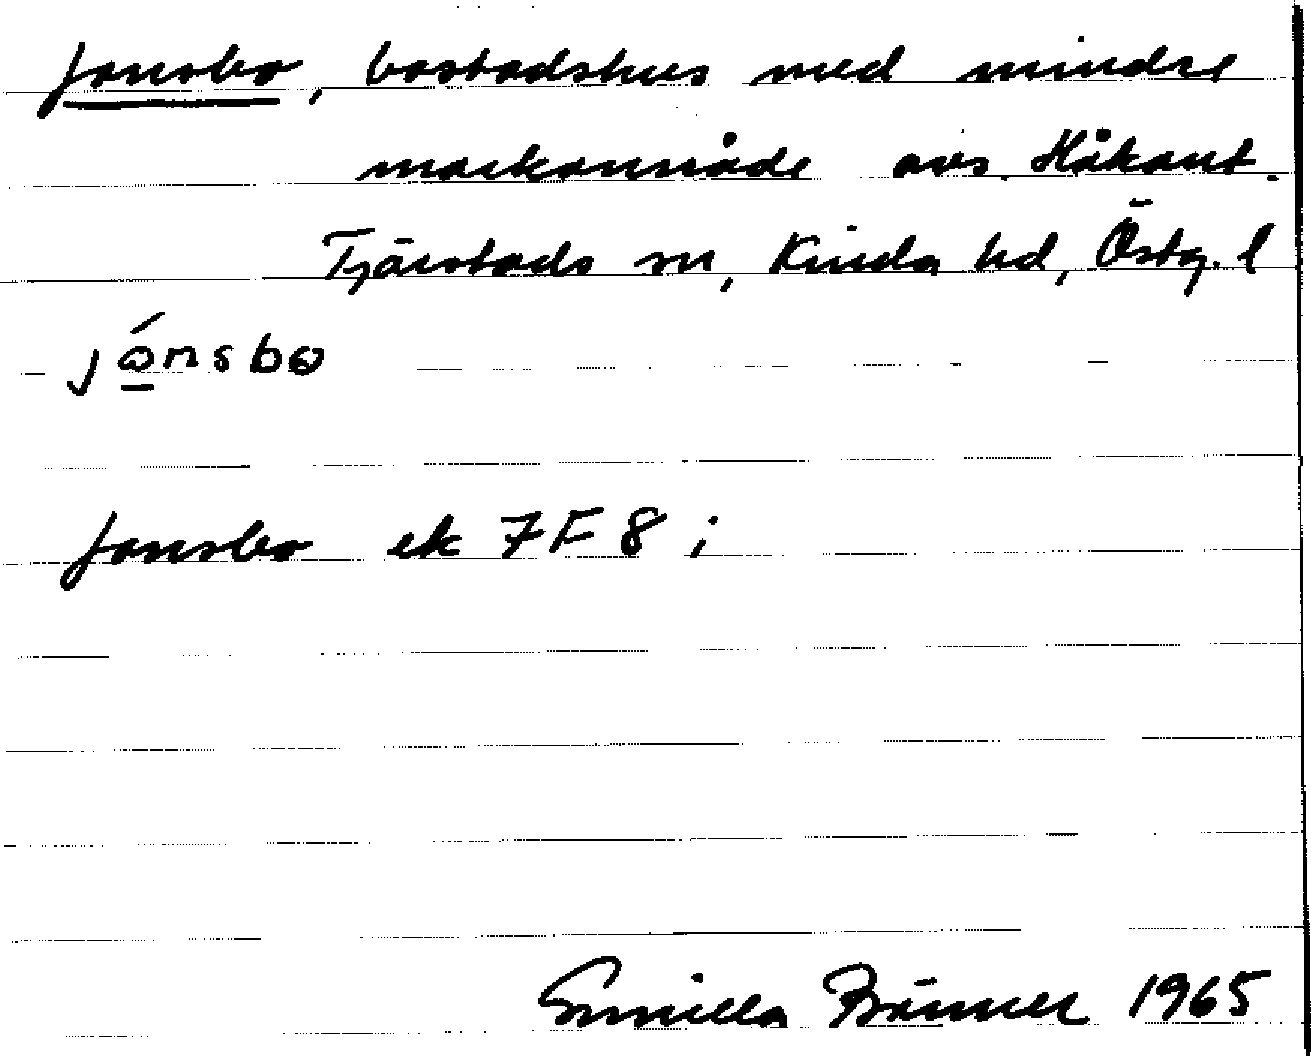 Jonsbo, bostadshus med mindre
markområde avs. Håkant.
Tjärstads sn, Kinda hd, Östg. l
jónsbo
Jonsbo ek 7F8i
Gunilla Bänner 1965